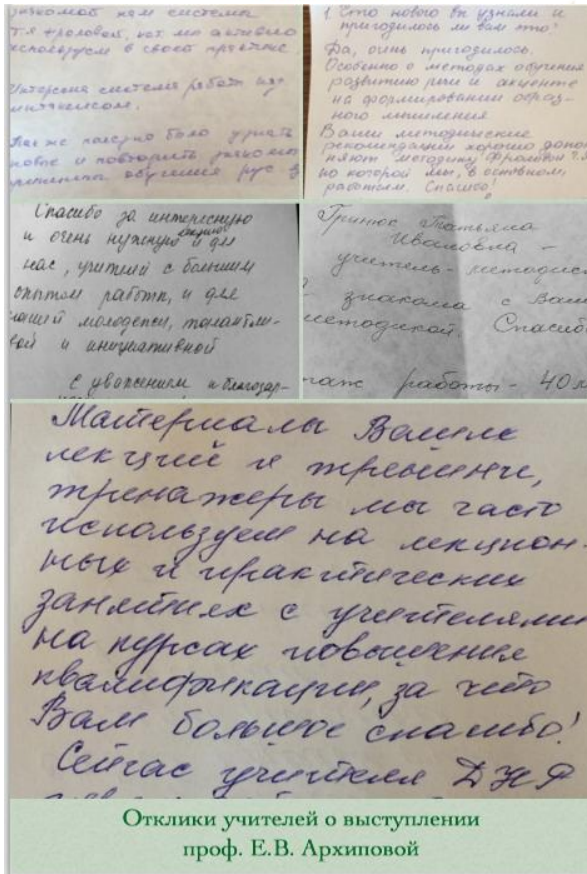 системы
Фроловой, вот мы активно
используем в своей практике.
система работы над
Также полезно было узнать
новое и повторить
обучения рус
1. Что нового вы узнали и
пригодилось ли вам это?
Да, очень пригодилось.
Особенно о методах обучения
развитию речи и акценте
на формировании образ-
ного мышления
Ваши методические
рекомендации хорошо допол-
няют методику Фроловой
по которой мы, в основном,
работаем. Спасибо!
Спасибо за интересную
и очень нужную и для
нас, учителей с большим
опытом работы, и для
нашей молодежи, талантли-
вой и инициативной
С уважением и благодар-
Татьяна
Ивановна -
учитель-методист
знакома с Ваш
методикой. Спасиб
стаж работы - 40 л
Материалы Ваших
лекций и
тренажеры мы часто
используем на лекцион-
ных и практических
занятиях с учителями
на курсах повышения
квалификации, за что
Вам большое спасибо!
Сейчас учителя ДНР
Отклики учителей о выступлении
проф. Е.В. Архиповой